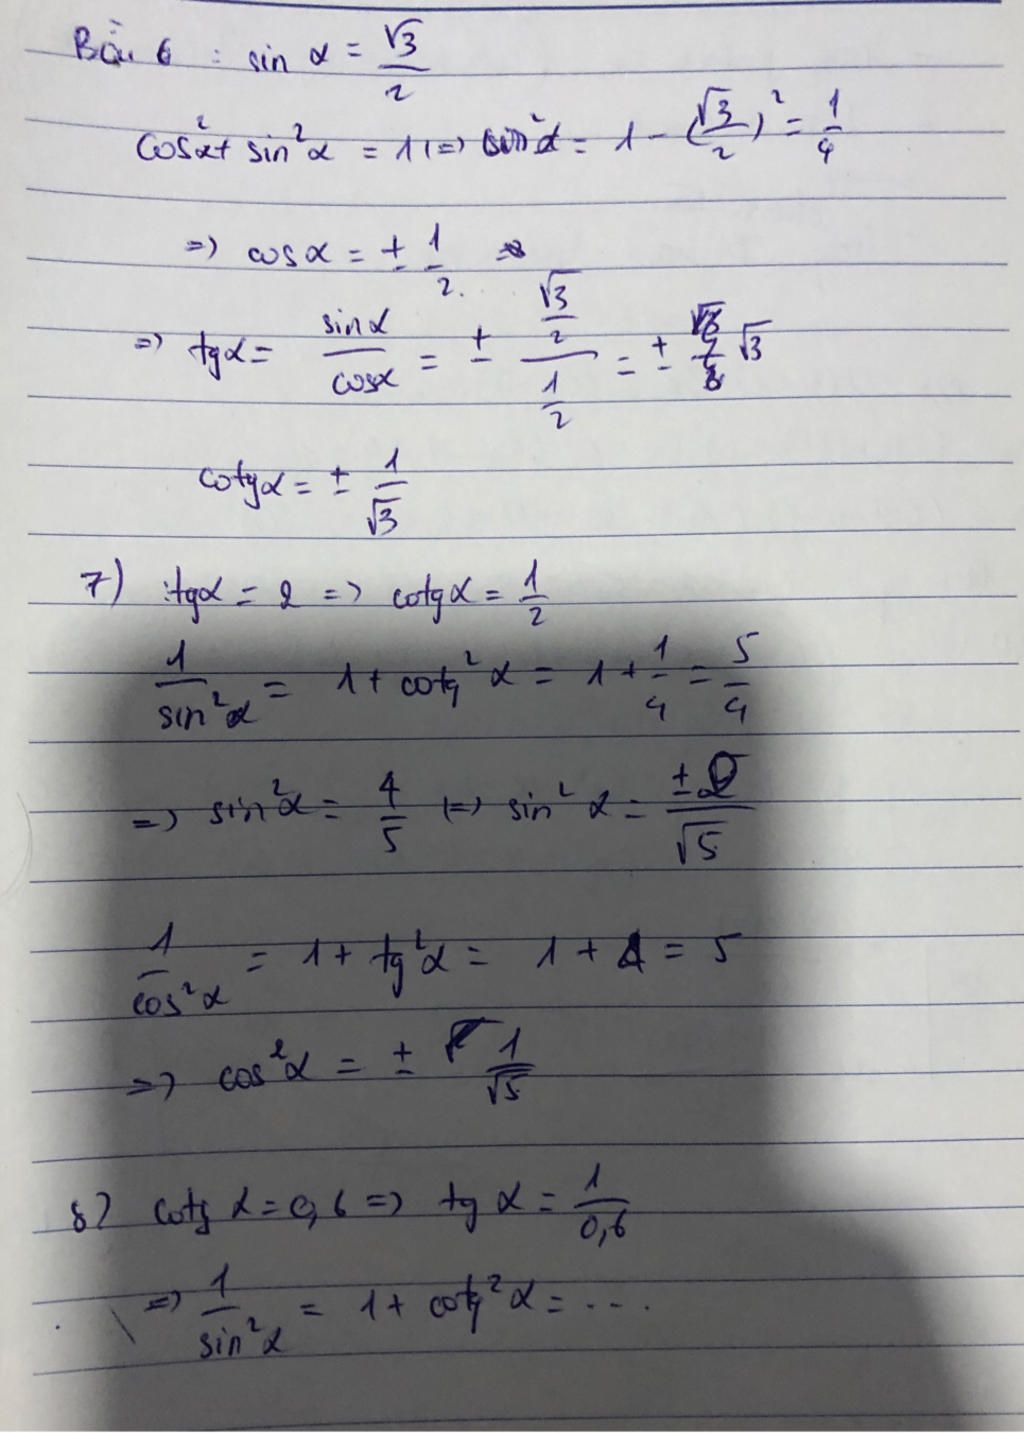 Bài 6 : sin α = √3/2
cos²α + sin²α = 1 (=) sin²α = 1 - (√3/2)² = 1/4
=) cos α = ± 1/2
=) tgα = sinα/cosα = ± (√3/2)/(1/2) = ± √3
cotgα = ± 1/√3
7) tgα = 2 =) cotgα = 1/2
1/sin²α = 1 + cotg²α = 1 + 1/4 = 5/4
=) sin²α = 4/5 (=) sin²α = ±2/√5
1/cos²α = 1 + tg²α = 1 + 4 = 5
=) cos²α = ± 1/√5
8) cotg α = 0,6 =) tg α = 1/0,6
=) 1/sin²α = 1 + cotg²α = ....